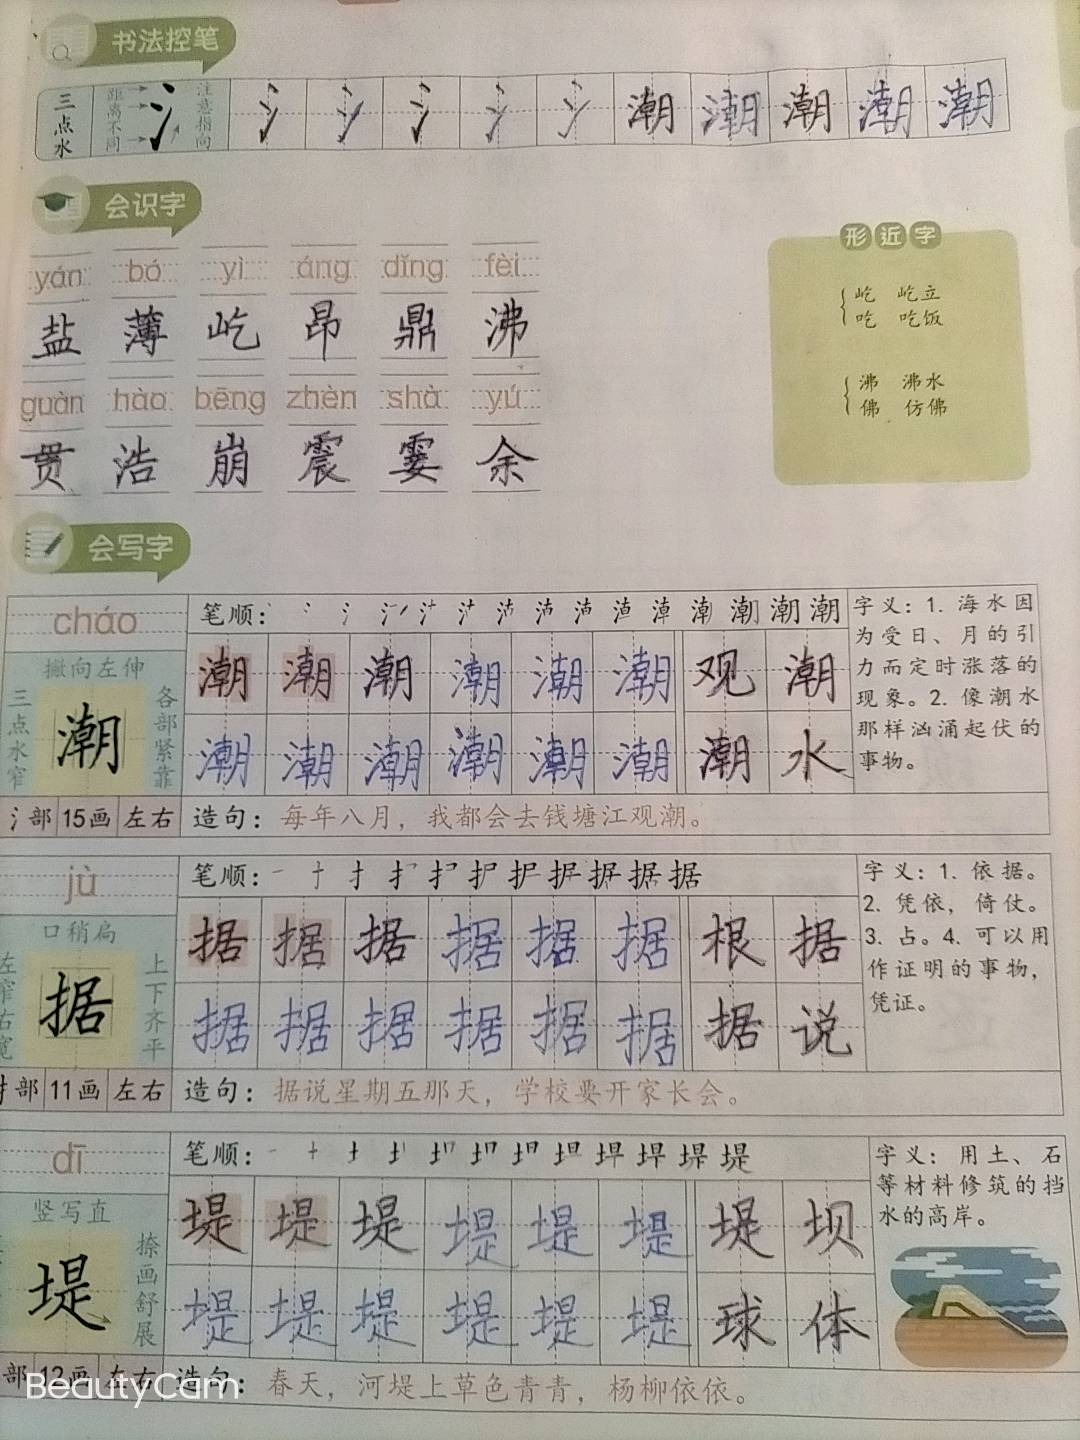 书法控笔
三点水 距离不同 氵 注意指向 氵 氵 氵 氵 氵 潮 潮 潮 潮 潮
会识字
yán bó yì áng dǐng fèi
盐 薄 屹 昂 鼎 沸
guàn hào bēng zhèn shà yú
贯 浩 崩 震 霎 余
形近字
屹 屹立
吃 吃饭
沸 沸水
佛 仿佛
会写字
cháo
撇向左伸
三点水窄
潮
各部紧靠
氵部 15画 左右
笔顺:
潮 潮 潮 潮 潮 潮 观 潮
潮 潮 潮 潮 潮 潮 潮 水
造句：每年八月，我都会去钱塘江观潮。
字义：1. 海水因
为受日、月的引
力而定时涨落的
现象。2. 像潮水
那样汹涌起伏的
事物。
jù
口稍扁
左窄右宽
据
上下齐平
扌部 11画 左右
笔顺:
据 据 据 据 据 据 根 据
据 据 据 据 据 据 据 说
造句：据说星期五那天，学校要开家长会。
字义：1. 依据。
2. 凭依，倚仗。
3. 占。4. 可以用
作证明的事物，
凭证。
dī
竖写直
堤
捺画舒展
部 12画 左右
笔顺:
堤 堤 堤 堤 堤 堤 堤 坝
堤 堤 堤 堤 堤 堤 球 体
造句：春天，河堤上草色青青，杨柳依依。
字义：用土、石
等材料修筑的挡
水的高岸。
BeautyCam